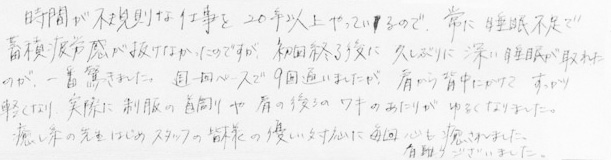 時間が不規則な仕事を20年以上やっているので、常に睡眠不足で
蓄積疲労感が抜けなかったのですが、初回終了後に久しぶりに深い睡眠が取れた
のが、一番驚きました。週一回ペースで9回通いましたが、肩から背中にかけてすっかり
軽くなり、実際に制服の首周りや肩の後ろのワキのあたりがゆるくなりました。
癒し系の先生はじめスタッフの皆様の優しい対応に毎回心も癒されました。
有難うございました。